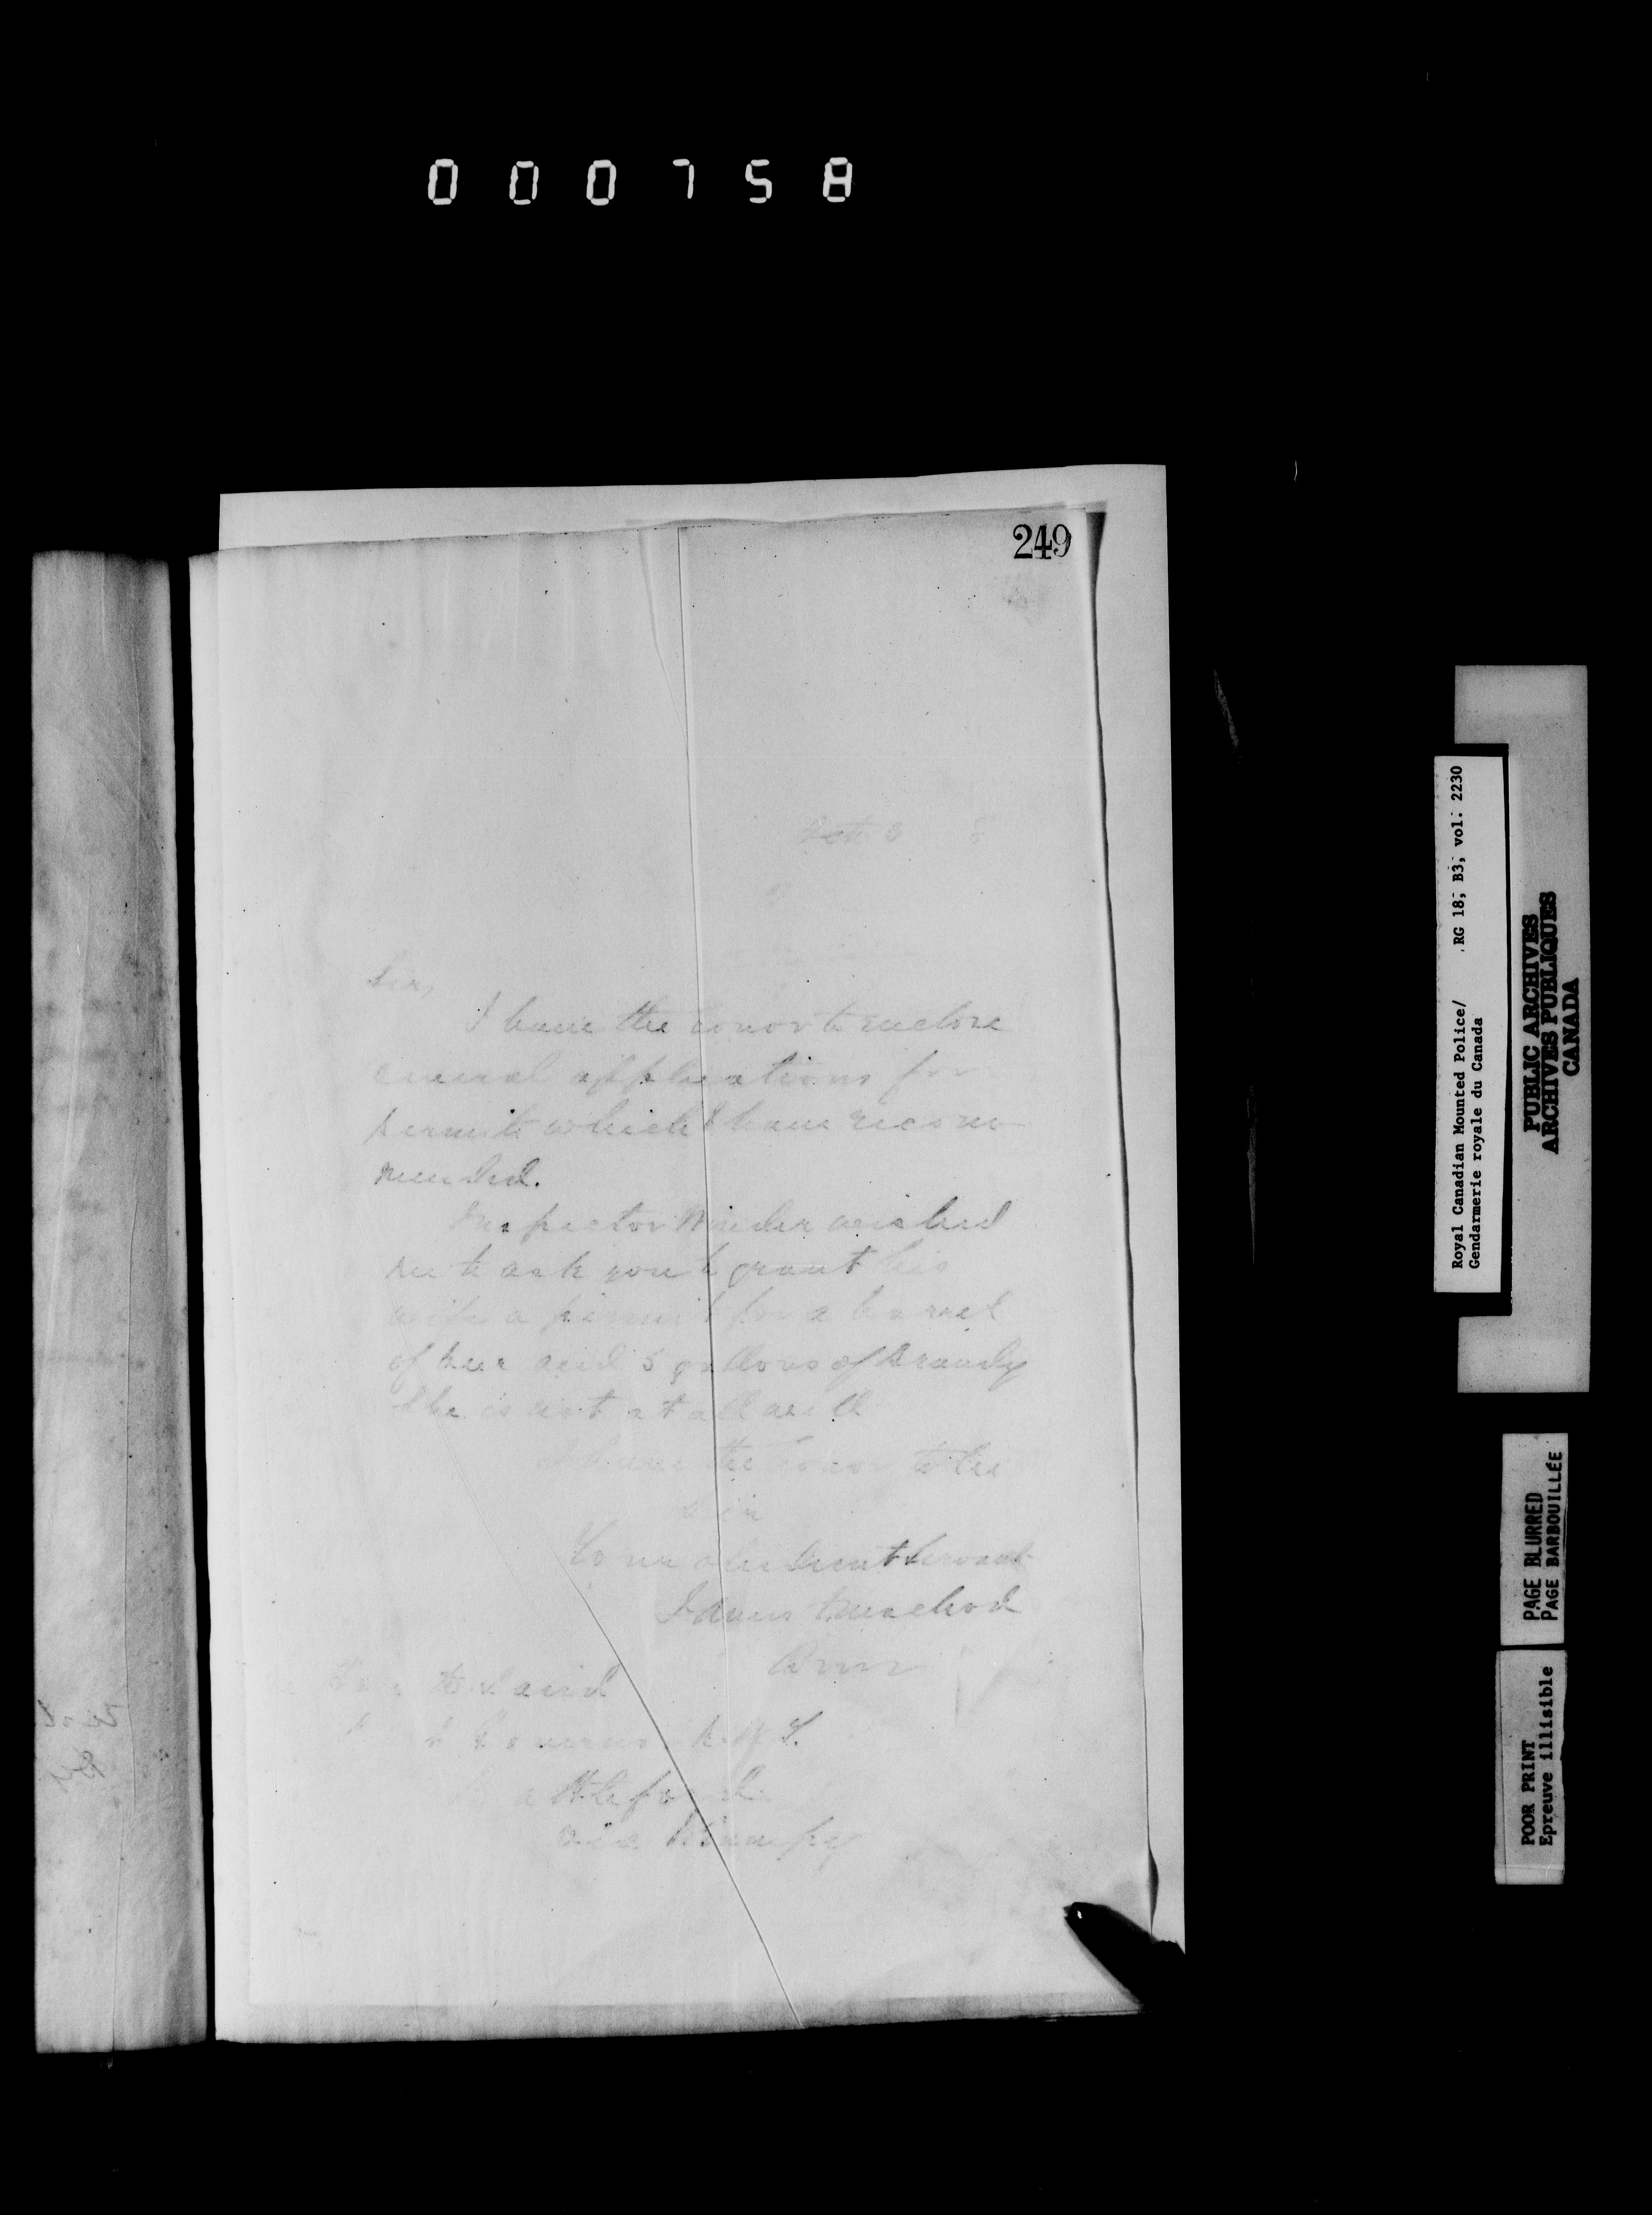 000758
249
Oct 3
Sir,
I have the honor to enclose
several applications for
permits which I have recom
mended.
Inspector Winder wished
me to ask you to grant his
wife a permit for a barrel
of beer and 5 gallons of Brandy
She is not at all well
I have the honor to be
Sir
Your obedient Servant
James Macleod
Comr
Laird
Governor N.W.T.
Battleford
via Winnipeg
Royal Canadian Mounted Police/ RG 18, B3, vol. 2230
Gendarmerie royale du Canada
PUBLIC ARCHIVES
ARCHIVES PUBLIQUES
CANADA
PAGE BLURRED
PAGE BARBOUILLÉE
POOR PRINT
Epreuve illisible